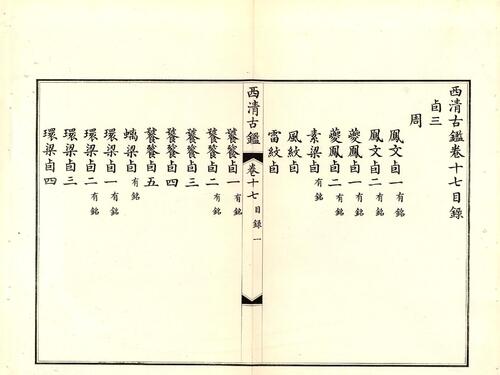 西清古鑑卷十七目錄
卣三
周
鳳文卣一 有銘
鳳文卣二 有銘
夔鳳卣一 有銘
夔鳳卣二 有銘
素梁卣 有銘
風紋卣
雷紋卣
西清古鑑 卷十七 目錄 一
饕餮卣一 有銘
饕餮卣二 有銘
饕餮卣三 有銘
饕餮卣四
饕餮卣五
蟠梁卣 有銘
環梁卣一 有銘
環梁卣二 有銘
環梁卣三
環梁卣四